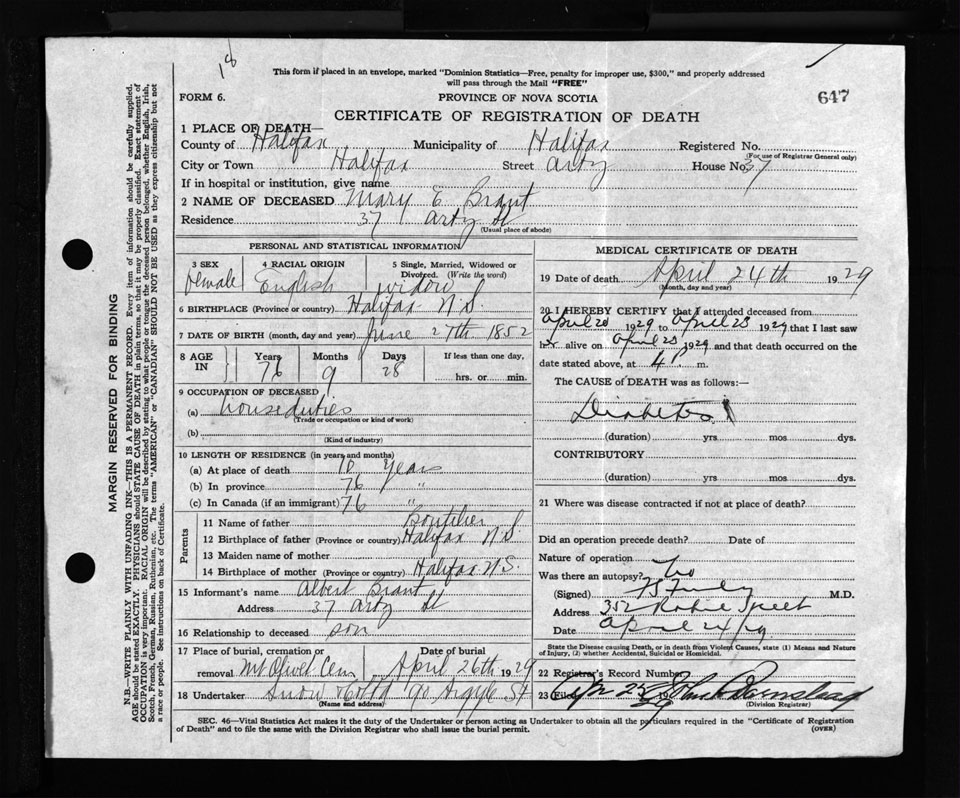 18
This form if placed in an envelope, marked "Dominion Statistics—Free, penalty for improper use, $300," and properly addressed
will pass through the Mail "FREE"
FORM 6.
PROVINCE OF NOVA SCOTIA
647
CERTIFICATE OF REGISTRATION OF DEATH
1 PLACE OF DEATH—
County of Halifax Municipality of Halifax Registered No.
(For use of Registrar General only)
City or Town Halifax Street Arty House No. 37
If in hospital or institution, give name
2 NAME OF DECEASED Mary E Brant
Residence 37 Arty St
(Usual place of abode)
PERSONAL AND STATISTICAL INFORMATION
3 SEX 4 RACIAL ORIGIN 5 Single, Married, Widowed or
Divorced. (Write the word)
female English widow
6 BIRTHPLACE (Province or country) Halifax N.S.
7 DATE OF BIRTH (month, day and year) June 27th 1852
8 AGE IN Years Months Days If less than one day,
76 9 28 hrs. or min.
9 OCCUPATION OF DECEASED
(a) house duties
(Trade or occupation or kind of work)
(b)
(Kind of industry)
10 LENGTH OF RESIDENCE (in years and months)
(a) At place of death 10 years
(b) In province 76 "
(c) In Canada (if an immigrant) 76 "
Parents
11 Name of father Boutilier
12 Birthplace of father (Province or country) Halifax N.S.
13 Maiden name of mother
14 Birthplace of mother (Province or country) Halifax N.S.
15 Informant's name Albert Brant
Address 37 Arty St
16 Relationship to deceased son
17 Place of burial, cremation or Date of burial
removal Mt Olivet Cem April 26th 1929
18 Undertaker Snow & Co Ltd 90 Argyle St
(Name and address)
MEDICAL CERTIFICATE OF DEATH
19 Date of death April 24th 1929
(Month, day and year)
20 I HEREBY CERTIFY that I attended deceased from
April 20 1929 to April 23 1929 that I last saw
her alive on April 23 1929 and that death occurred on the
date stated above, at 4 P. m.
The CAUSE of DEATH was as follows:—
Diabetes
(duration) yrs mos dys.
CONTRIBUTORY
(duration) yrs. mos. dys.
21 Where was disease contracted if not at place of death?
Did an operation precede death? Date of
Nature of operation
Was there an autopsy? No
(Signed) M.D.
Address 352 Robie Street
Date April 24/29
State the Disease causing Death, or in death from Violent Causes, state (1) Means and Nature
of Injury, (2) whether Accidental, Suicidal or Homicidal.
22 Registrar's Record Number
23 Filed Apr 25 1929
(Division Registrar)
SEC. 46—Vital Statistics Act makes it the duty of the Undertaker or person acting as Undertaker to obtain all the particulars required in the "Certificate of Registration
of Death" and to file the same with the Division Registrar who shall issue the burial permit.
(OVER)
MARGIN RESERVED FOR BINDING
N.B.—WRITE PLAINLY WITH UNFADING INK—THIS IS A PERMANENT RECORD. Every item of information should be carefully supplied.
AGE should be stated EXACTLY. PHYSICIANS should STATE CAUSE OF DEATH in plain terms, so that it may be properly classified. Exact statement of
OCCUPATION is very important. RACIAL ORIGIN will be described by stating to what people or tongue the deceased person belonged, whether English, Irish,
Scotch, French, German, Russian, Ruthenian, etc. The terms "AMERICAN" or "CANADIAN" SHOULD NOT BE USED as they express citizenship but not
a race or people. See instructions on back of Certificate.